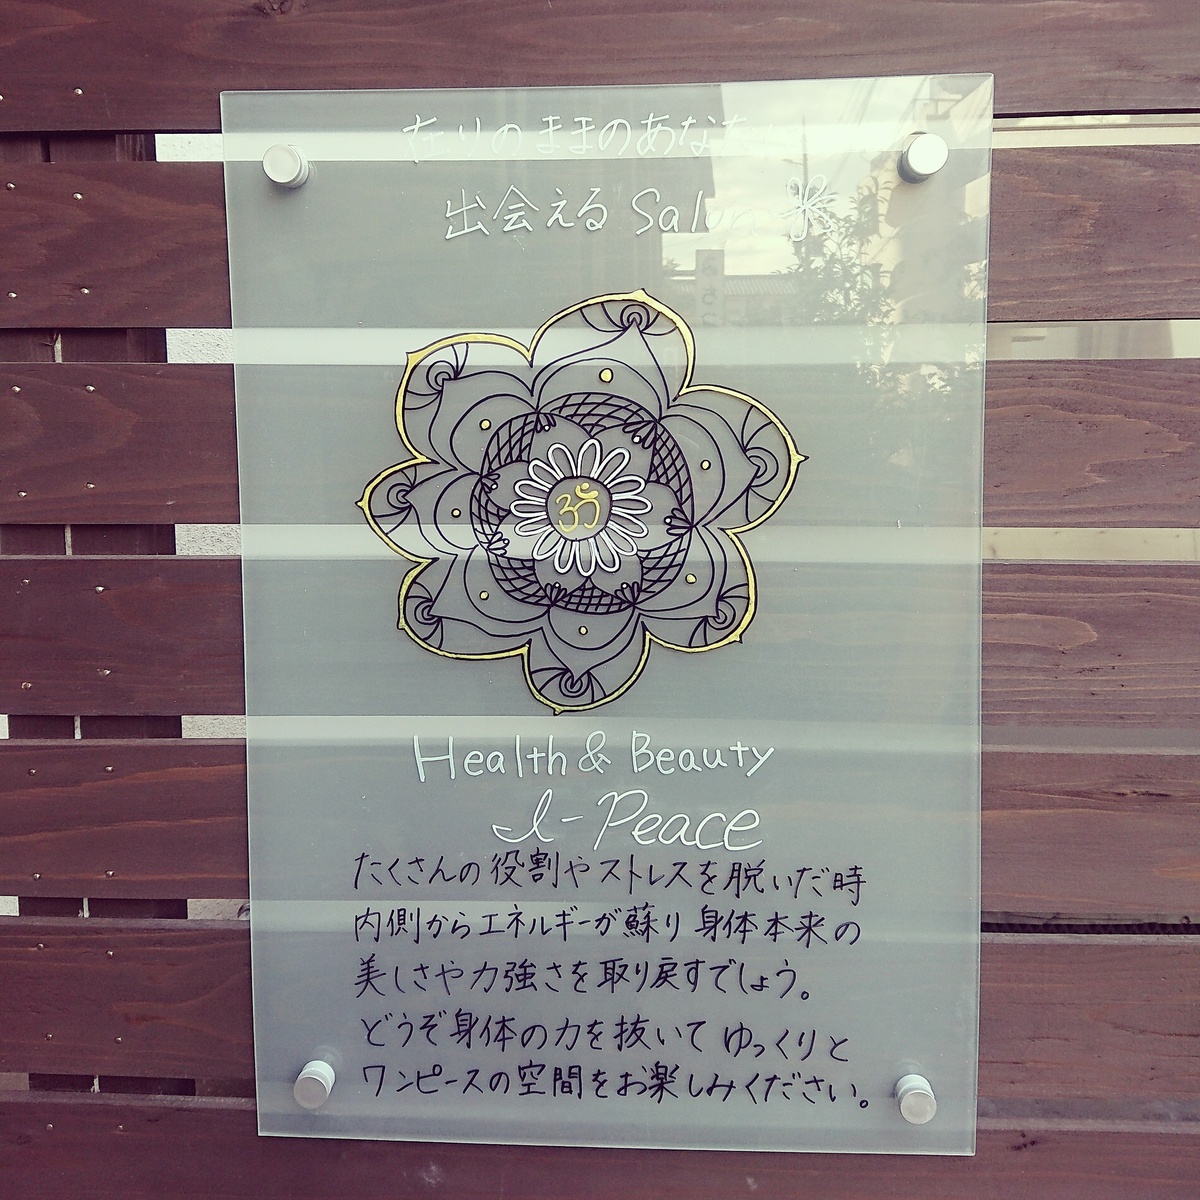 在りのままのあなたに
出会える Salon
ૐ
Health & Beauty
I-Peace
たくさんの役割やストレスを脱いだ時
内側からエネルギーが蘇り 身体本来の
美しさや力強さを取り戻すでしょう。
どうぞ身体の力を抜いて ゆっくりと
ワンピースの空間をお楽しみください。